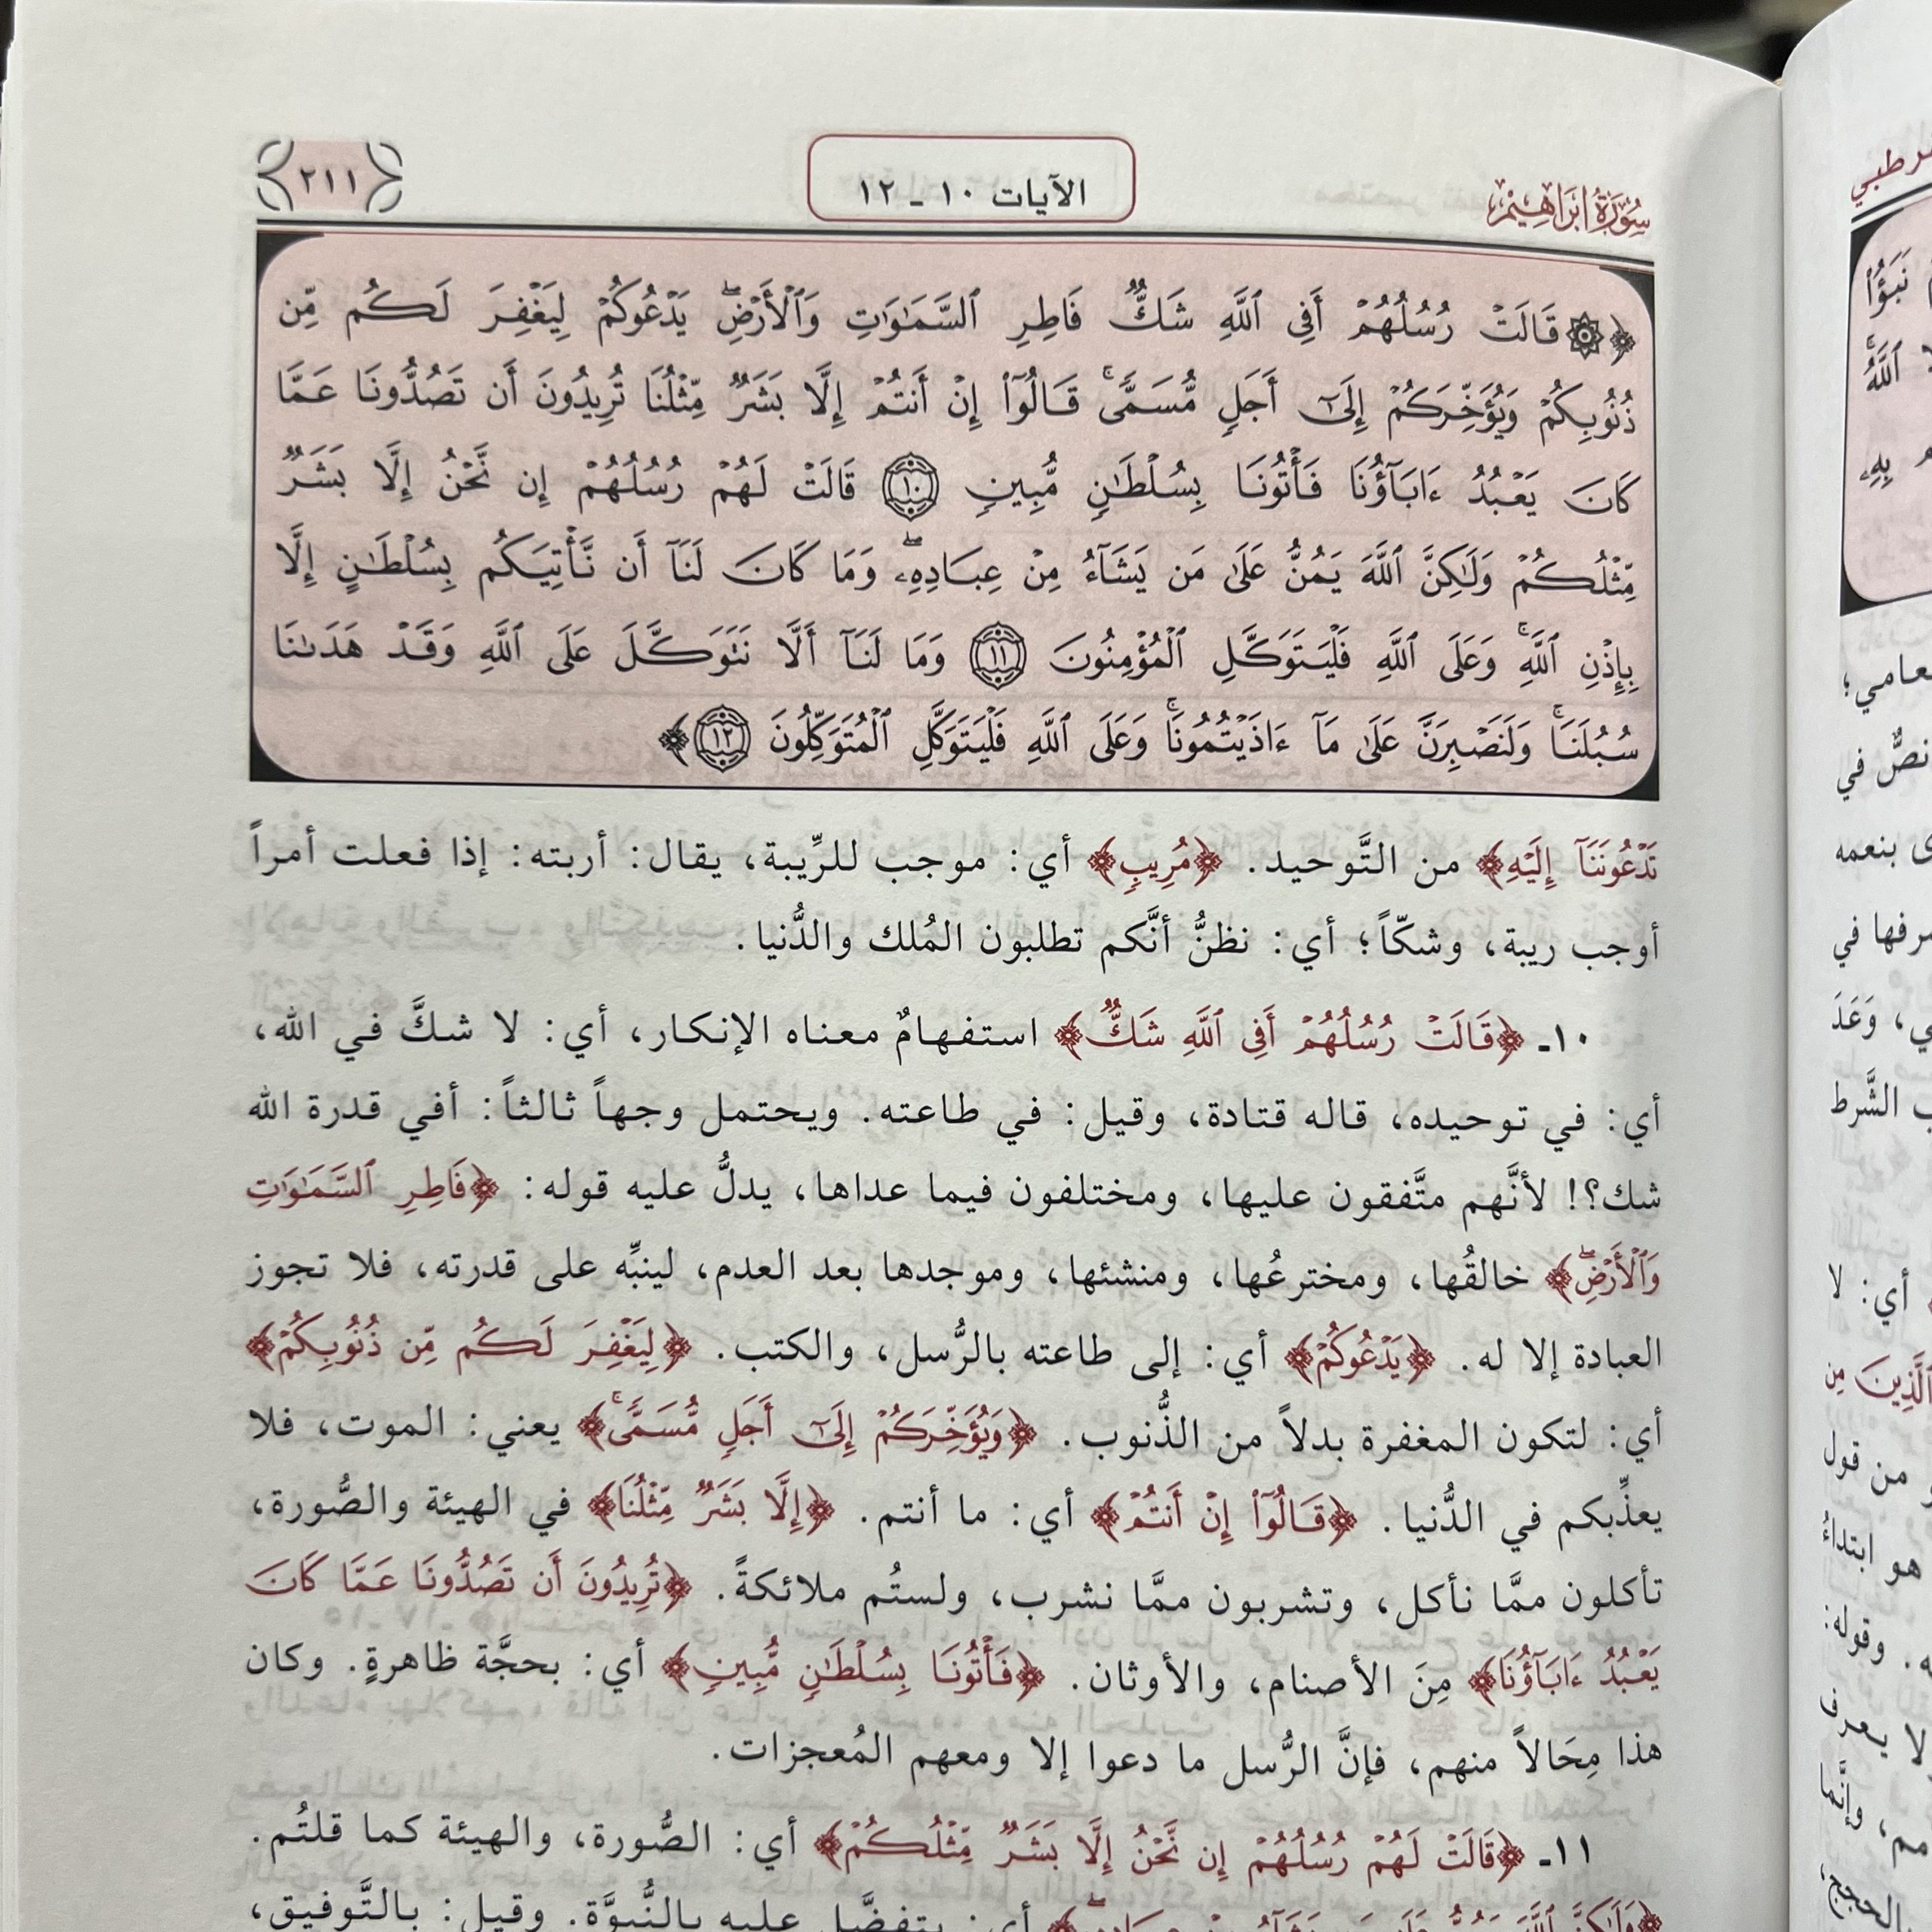 سُورَةُ إِبْرَاهِيمَ
الآيات ١٠ ـ ١٢
٢١١
﴿۞ قَالَتْ رُسُلُهُمْ أَفِى ٱللَّهِ شَكٌّ فَاطِرِ ٱلسَّمَٰوَٰتِ وَٱلْأَرْضِۖ يَدْعُوكُمْ لِيَغْفِرَ لَكُم مِّن
ذُنُوبِكُمْ وَيُؤَخِّرَكُمْ إِلَىٰٓ أَجَلٍ مُّسَمًّىۚ قَالُوٓا۟ إِنْ أَنتُمْ إِلَّا بَشَرٌ مِّثْلُنَا تُرِيدُونَ أَن تَصُدُّونَا عَمَّا
كَانَ يَعْبُدُ ءَابَآؤُنَا فَأْتُونَا بِسُلْطَٰنٍ مُّبِينٍ ۝١٠ قَالَتْ لَهُمْ رُسُلُهُمْ إِن نَّحْنُ إِلَّا بَشَرٌ
مِّثْلُكُمْ وَلَٰكِنَّ ٱللَّهَ يَمُنُّ عَلَىٰ مَن يَشَآءُ مِنْ عِبَادِهِۦۖ وَمَا كَانَ لَنَآ أَن نَّأْتِيَكُم بِسُلْطَٰنٍ إِلَّا
بِإِذْنِ ٱللَّهِۚ وَعَلَى ٱللَّهِ فَلْيَتَوَكَّلِ ٱلْمُؤْمِنُونَ ۝١١ وَمَا لَنَآ أَلَّا نَتَوَكَّلَ عَلَى ٱللَّهِ وَقَدْ هَدَىٰنَا
سُبُلَنَاۚ وَلَنَصْبِرَنَّ عَلَىٰ مَآ ءَاذَيْتُمُونَاۚ وَعَلَى ٱللَّهِ فَلْيَتَوَكَّلِ ٱلْمُتَوَكِّلُونَ ۝١٢﴾
تَدْعُونَنَآ إِلَيْهِ﴾ من التَّوحيد. ﴿مُرِيبٍ﴾ أي: موجب للرِّيبة، يقال: أربته: إذا فعلت أمراً
أوجب ريبة، وشكّاً؛ أي: نظنُّ أنَّكم تطلبون المُلك والدُّنيا.
١٠ـ ﴿قَالَتْ رُسُلُهُمْ أَفِى ٱللَّهِ شَكٌّ﴾ استفهامٌ معناه الإنكار، أي: لا شكَّ في الله،
أي: في توحيده، قاله قتادة، وقيل: في طاعته. ويحتمل وجهاً ثالثاً: أفي قدرة الله
شك؟! لأنَّهم متَّفقون عليها، ومختلفون فيما عداها، يدلُّ عليه قوله: ﴿فَاطِرِ ٱلسَّمَٰوَٰتِ
وَٱلْأَرْضِۖ﴾ خالقُها، ومخترعُها، ومنشئها، وموجدها بعد العدم، لينبِّه على قدرته، فلا تجوز
العبادة إلا له. ﴿يَدْعُوكُمْ﴾ أي: إلى طاعته بالرُّسل، والكتب. ﴿لِيَغْفِرَ لَكُم مِّن ذُنُوبِكُمْ﴾
أي: لتكون المغفرة بدلاً من الذُّنوب. ﴿وَيُؤَخِّرَكُمْ إِلَىٰٓ أَجَلٍ مُّسَمًّىۚ﴾ يعني: الموت، فلا
يعذِّبكم في الدُّنيا. ﴿قَالُوٓا۟ إِنْ أَنتُمْ﴾ أي: ما أنتم. ﴿إِلَّا بَشَرٌ مِّثْلُنَا﴾ في الهيئة والصُّورة،
تأكلون ممَّا نأكل، وتشربون ممَّا نشرب، ولستُم ملائكةً. ﴿تُرِيدُونَ أَن تَصُدُّونَا عَمَّا كَانَ
يَعْبُدُ ءَابَآؤُنَا﴾ مِنَ الأصنام، والأوثان. ﴿فَأْتُونَا بِسُلْطَٰنٍ مُّبِينٍ﴾ أي: بحجَّة ظاهرةٍ. وكان
هذا مِحَالاً منهم، فإنَّ الرُّسل ما دعوا إلا ومعهم المُعجزات.
١١ـ ﴿قَالَتْ لَهُمْ رُسُلُهُمْ إِن نَّحْنُ إِلَّا بَشَرٌ مِّثْلُكُمْ﴾ أي: الصُّورة، والهيئة كما قلتُم.
﴿وَلَٰكِنَّ ٱللَّهَ يَمُنُّ عَلَىٰ مَن يَشَآءُ مِنْ عِبَادِهِۦۖ﴾ أي: يتفضَّل عليه بالنُّبوَّة. وقيل: بالتَّوفيق،